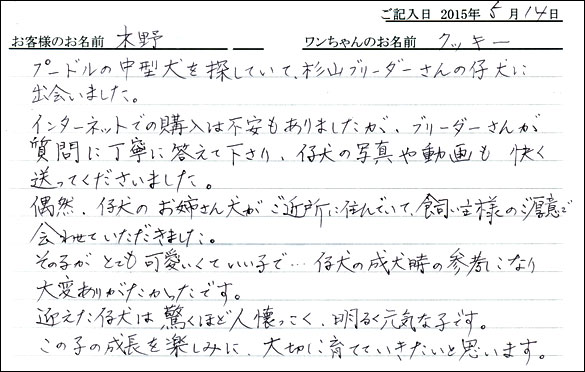 ご記入日 2015年 5月14日
お客様のお名前 木野 ワンちゃんのお名前 クッキー
プードルの中型犬を探していて、杉山ブリーダーさんの仔犬に
出会いました。
インターネットでの購入は不安もありましたが、ブリーダーさんが
質問に丁寧に答えて下さり、仔犬の写真や動画も 快く
送ってくださいました。
偶然、仔犬のお姉さん犬がご近所に住んでいて、飼い主様のご厚意で
会わせていただきました。
その子がとても可愛いくていい子で…仔犬の成犬時の参考になり
大変ありがたかったです。
迎えた仔犬は驚くほど人懐っこく、明るく元気な子です。
この子の成長を楽しみに、大切に育てていきたいと思います。